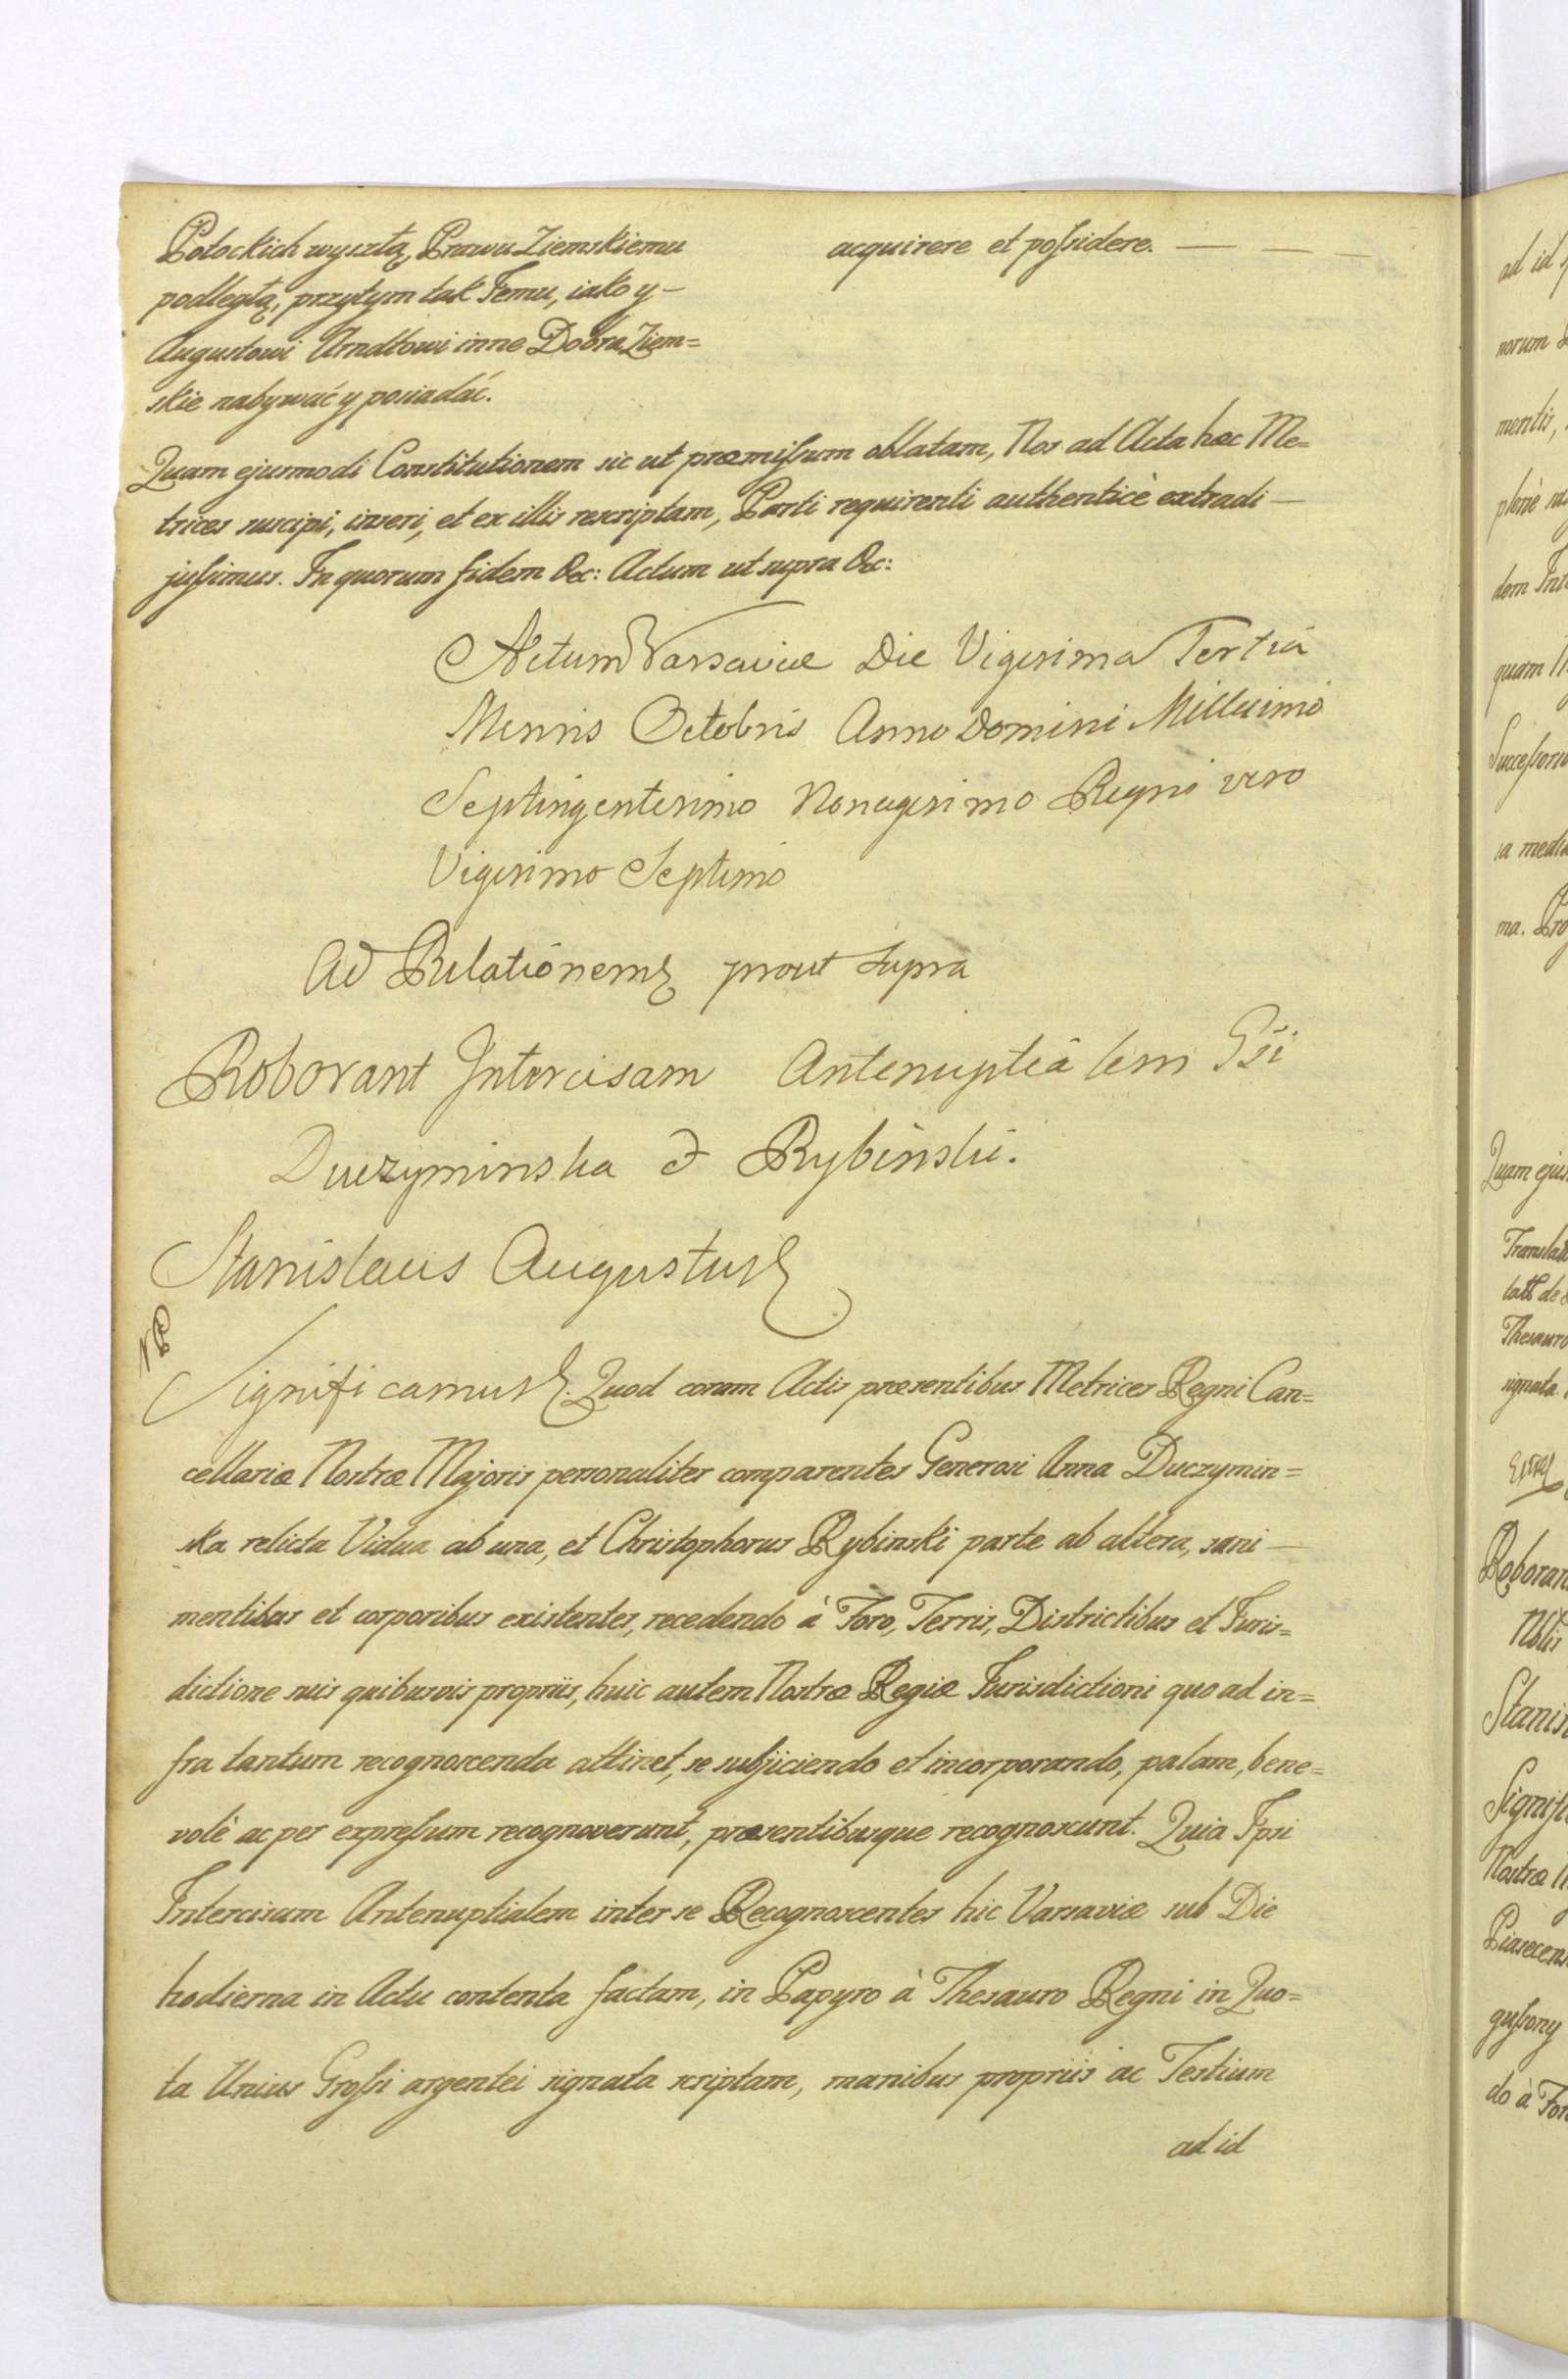 Potockich wyszłą, Prawu Ziemskiemu
podległą, przytym tak Jemu, iako y —
Augustowi Arndtowi inne Dobra Ziem=
skie nabywać y posiadać.
acquirere et possidere. — — —
Quam ejusmodi Constitutionem sic ut præmissum oblatam, Nos ad Acta hæc Me=
trices suscipi, inseri, et ex illis rescriptam, Parti requirenti authenticè extradi —
jussimus. In quorum fidem &c: Actum ut supra &c:
Actum Varsaviæ Die Vigesima Tertia
Mensis Octobris Anno Domini Millesimo
Septingentesimo Nonagesimo Regni vero
Vigesimo Septimo
Ad Relationem prout supra
Roborant Intercisam Antenuptialem Gsi
Duczyminska & Rybinski.
Stanislaus Augustus
Significamus &. Quod coram Actis præsentibus Metrices Regni Can=
cellariæ Nostræ Majoris personaliter comparentes Generosi Anna Duczymin=
ska relicta Vidua ab una, et Christophorus Rybinski parte ab altera, sani —
mentibus et corporibus existentes, recedendo à Foro, Terris, Districtibus et Juris=
dictione suis quibusvis propriis, huic autem Nostræ Regiæ Jurisdictioni quo ad in=
fra tantum recognoscenda attinet, se subjiciendo et incorporando, palam, bene=
volè ac per expressum recognoverunt, præsentibusque recognoscunt. Quia Ipsi
Intercisam Antenuptialem inter se Recognoscentes hic Varsaviæ sub Die
hodierna in Actu contenta factam, in Papyro à Thesauro Regni in Quo=
ta Unius Grossi argentei signata scriptam, manibus propriis ac Testium
ad id